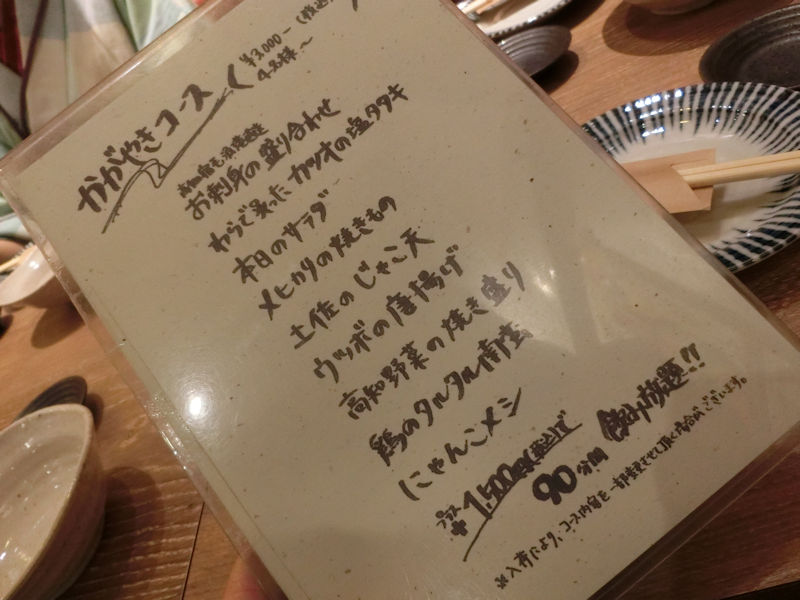 かがやきコース
¥3,000-(税込)
4名様〜
お刺身の盛り合わせ
わらで炙ったカツオの塩タタキ
本日のサラダ
メヒカリの焼きもの
土佐のじゃこ天
ウツボの唐揚げ
高知野菜の焼き盛り
鶏のタルタル南蛮
にゃんこメシ
プラス¥1,500(税込)で
90分間 飲み放題!!
※入荷により、コース内容を一部変更させて頂く場合がございます。